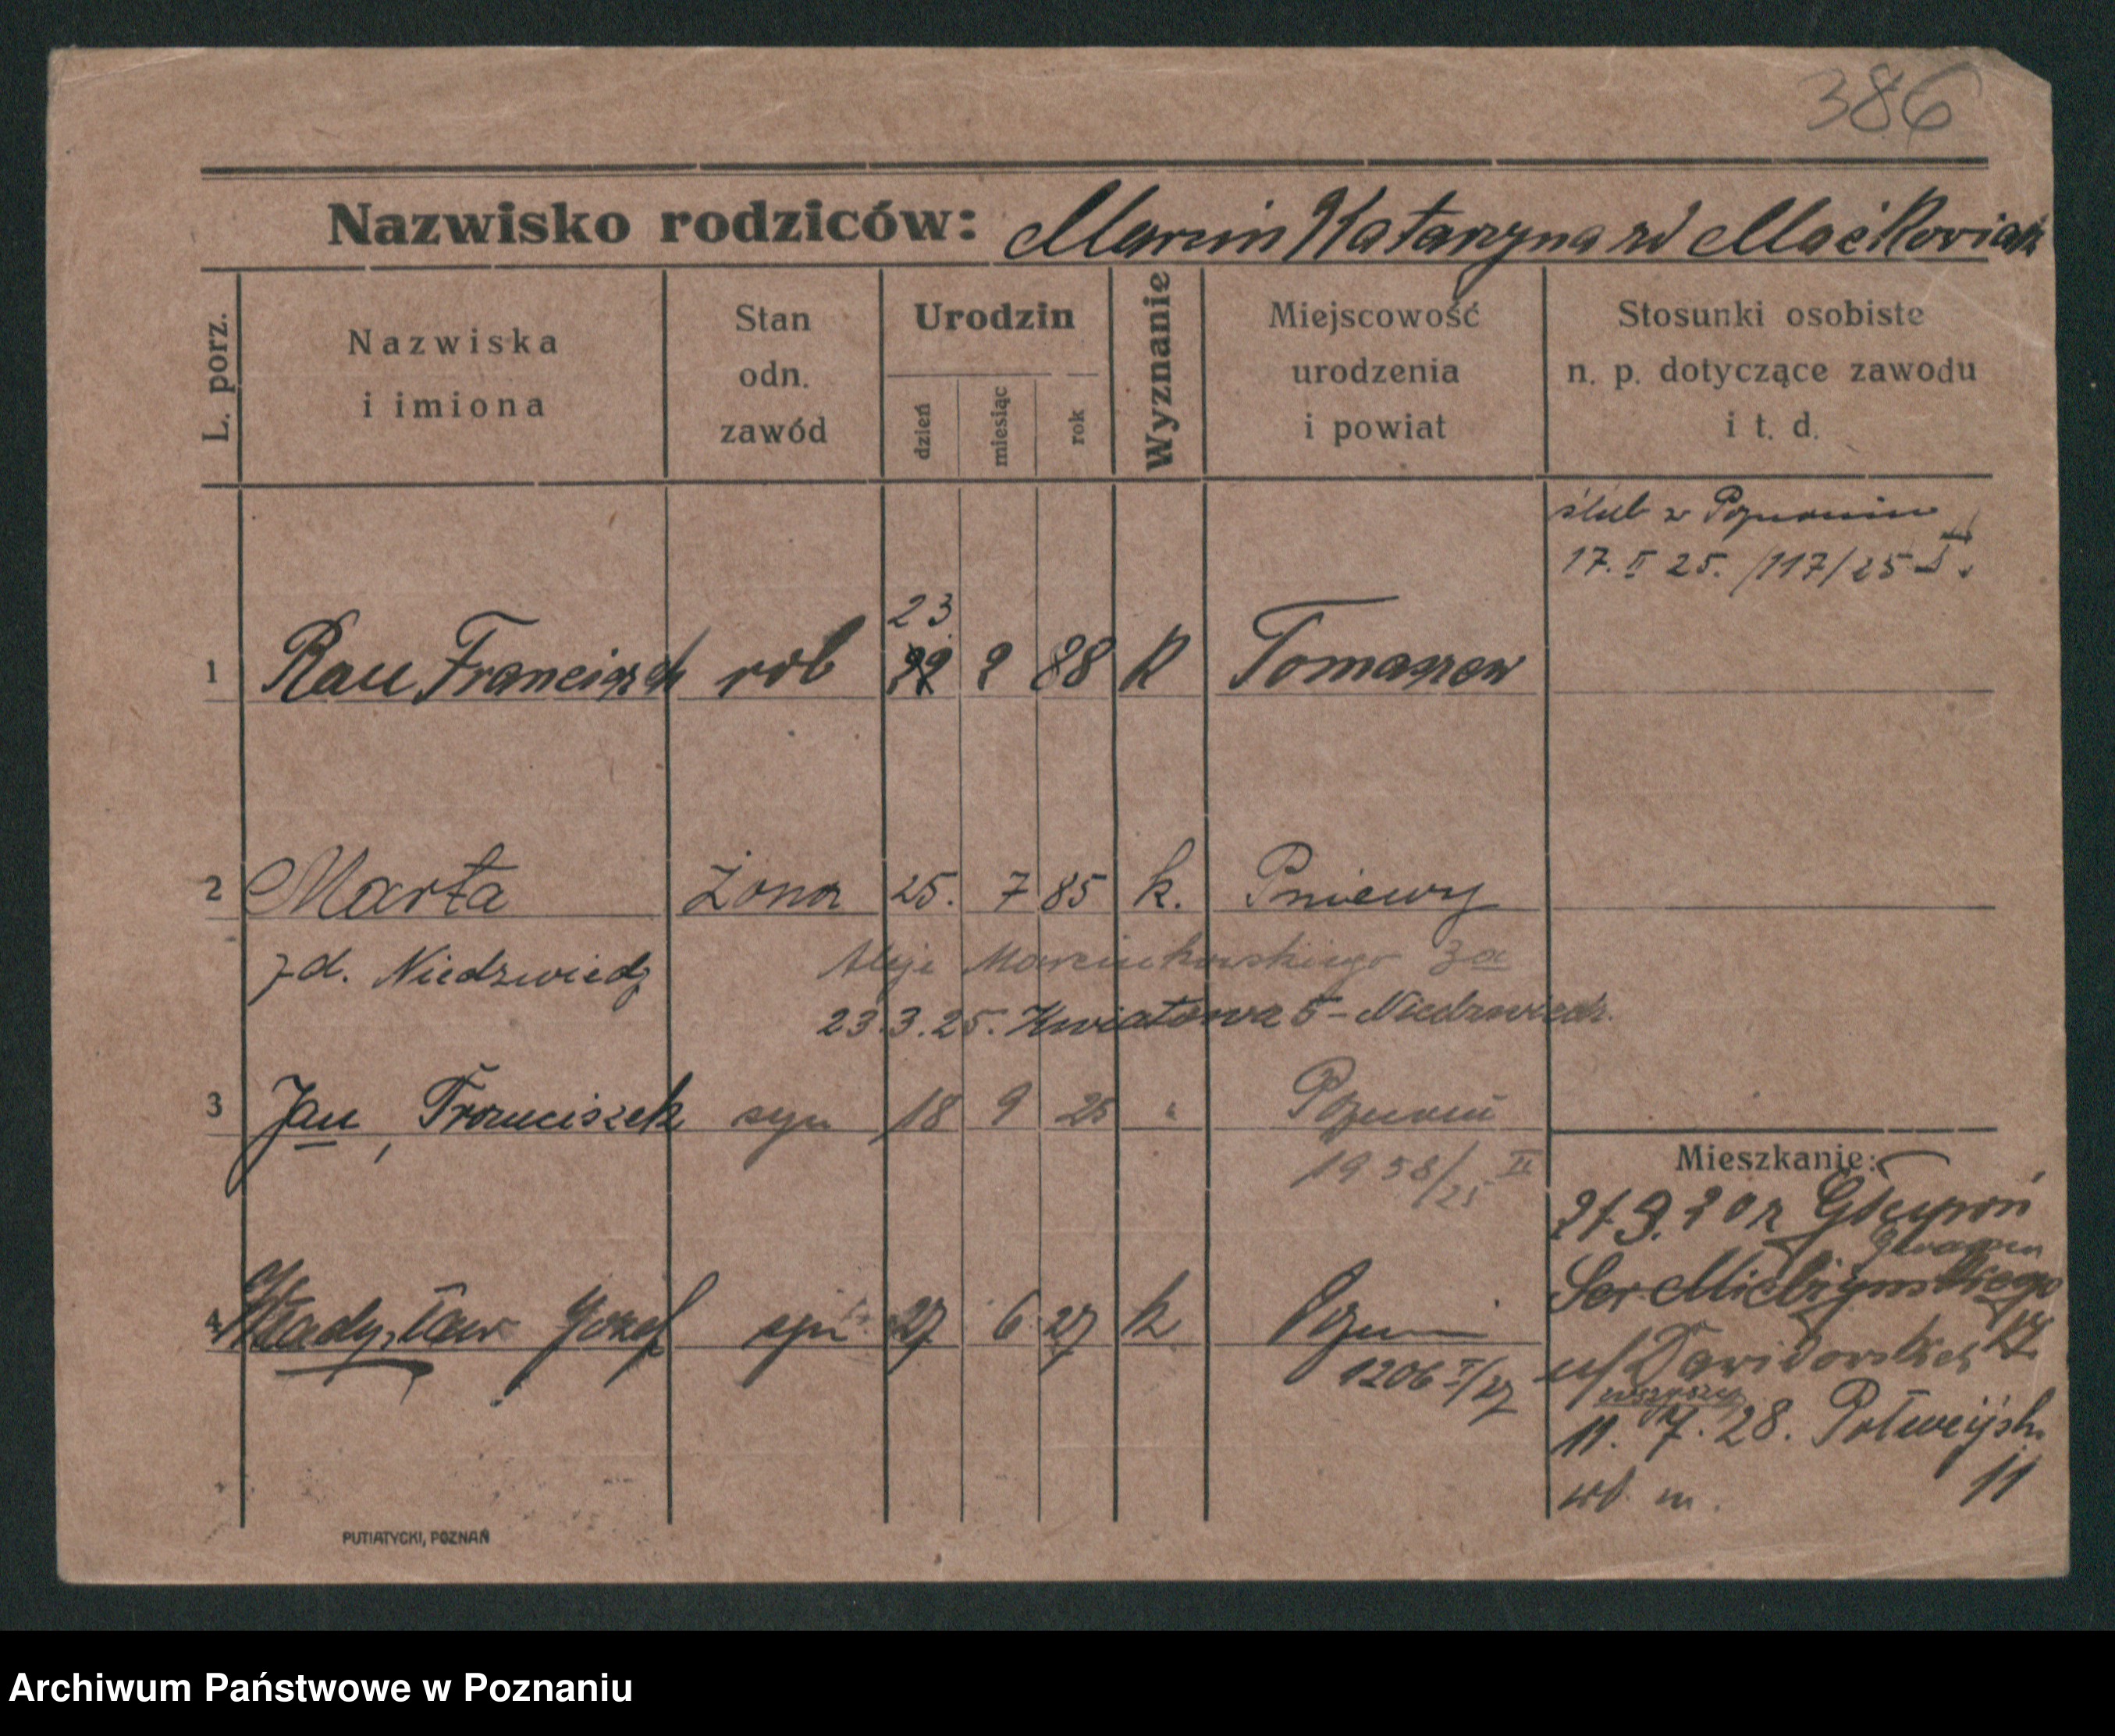 386
Nazwisko rodziców: Marcin Katarzyna zd Maćkowiak
L. porz.
Nazwiska
i imiona
Stan
odn.
zawód
Urodzin
dzień
miesiąc
rok
Wyznanie
Miejscowość
urodzenia
i powiat
Stosunki osobiste
n. p. dotyczące zawodu
i t. d.
ślub w Poznaniu
17. II 25. /117/25
23
1 Rau Franciszek rob 22 2 88 K Tomaszew
2 Marta żona 25. 7 85 k. Pniewy
z d. Niedzwiedz
Aleje Marcinkowskiego 3a
23.3.25. Kwiatowa 5 - Niedzwiedz.
3 Jan, Franciszek syn 18 9 25 " Poznań
1958/25 II
Mieszkanie:
4 Władysław Józef syn 27 6 27 k Poznań
1206 I/27
11. 7. 28. Półwiejsk.
11
PUTIATYCKI, POZNAŃ
Archiwum Państwowe w Poznaniu